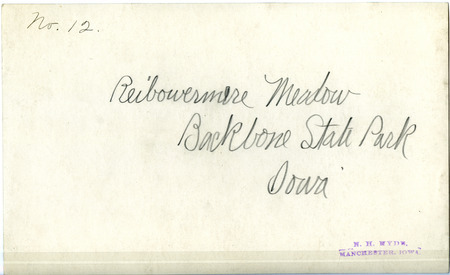 No. 12.
Reibowermere Meadow
Backbone State Park
Iowa
MANCHESTER, IOWA.